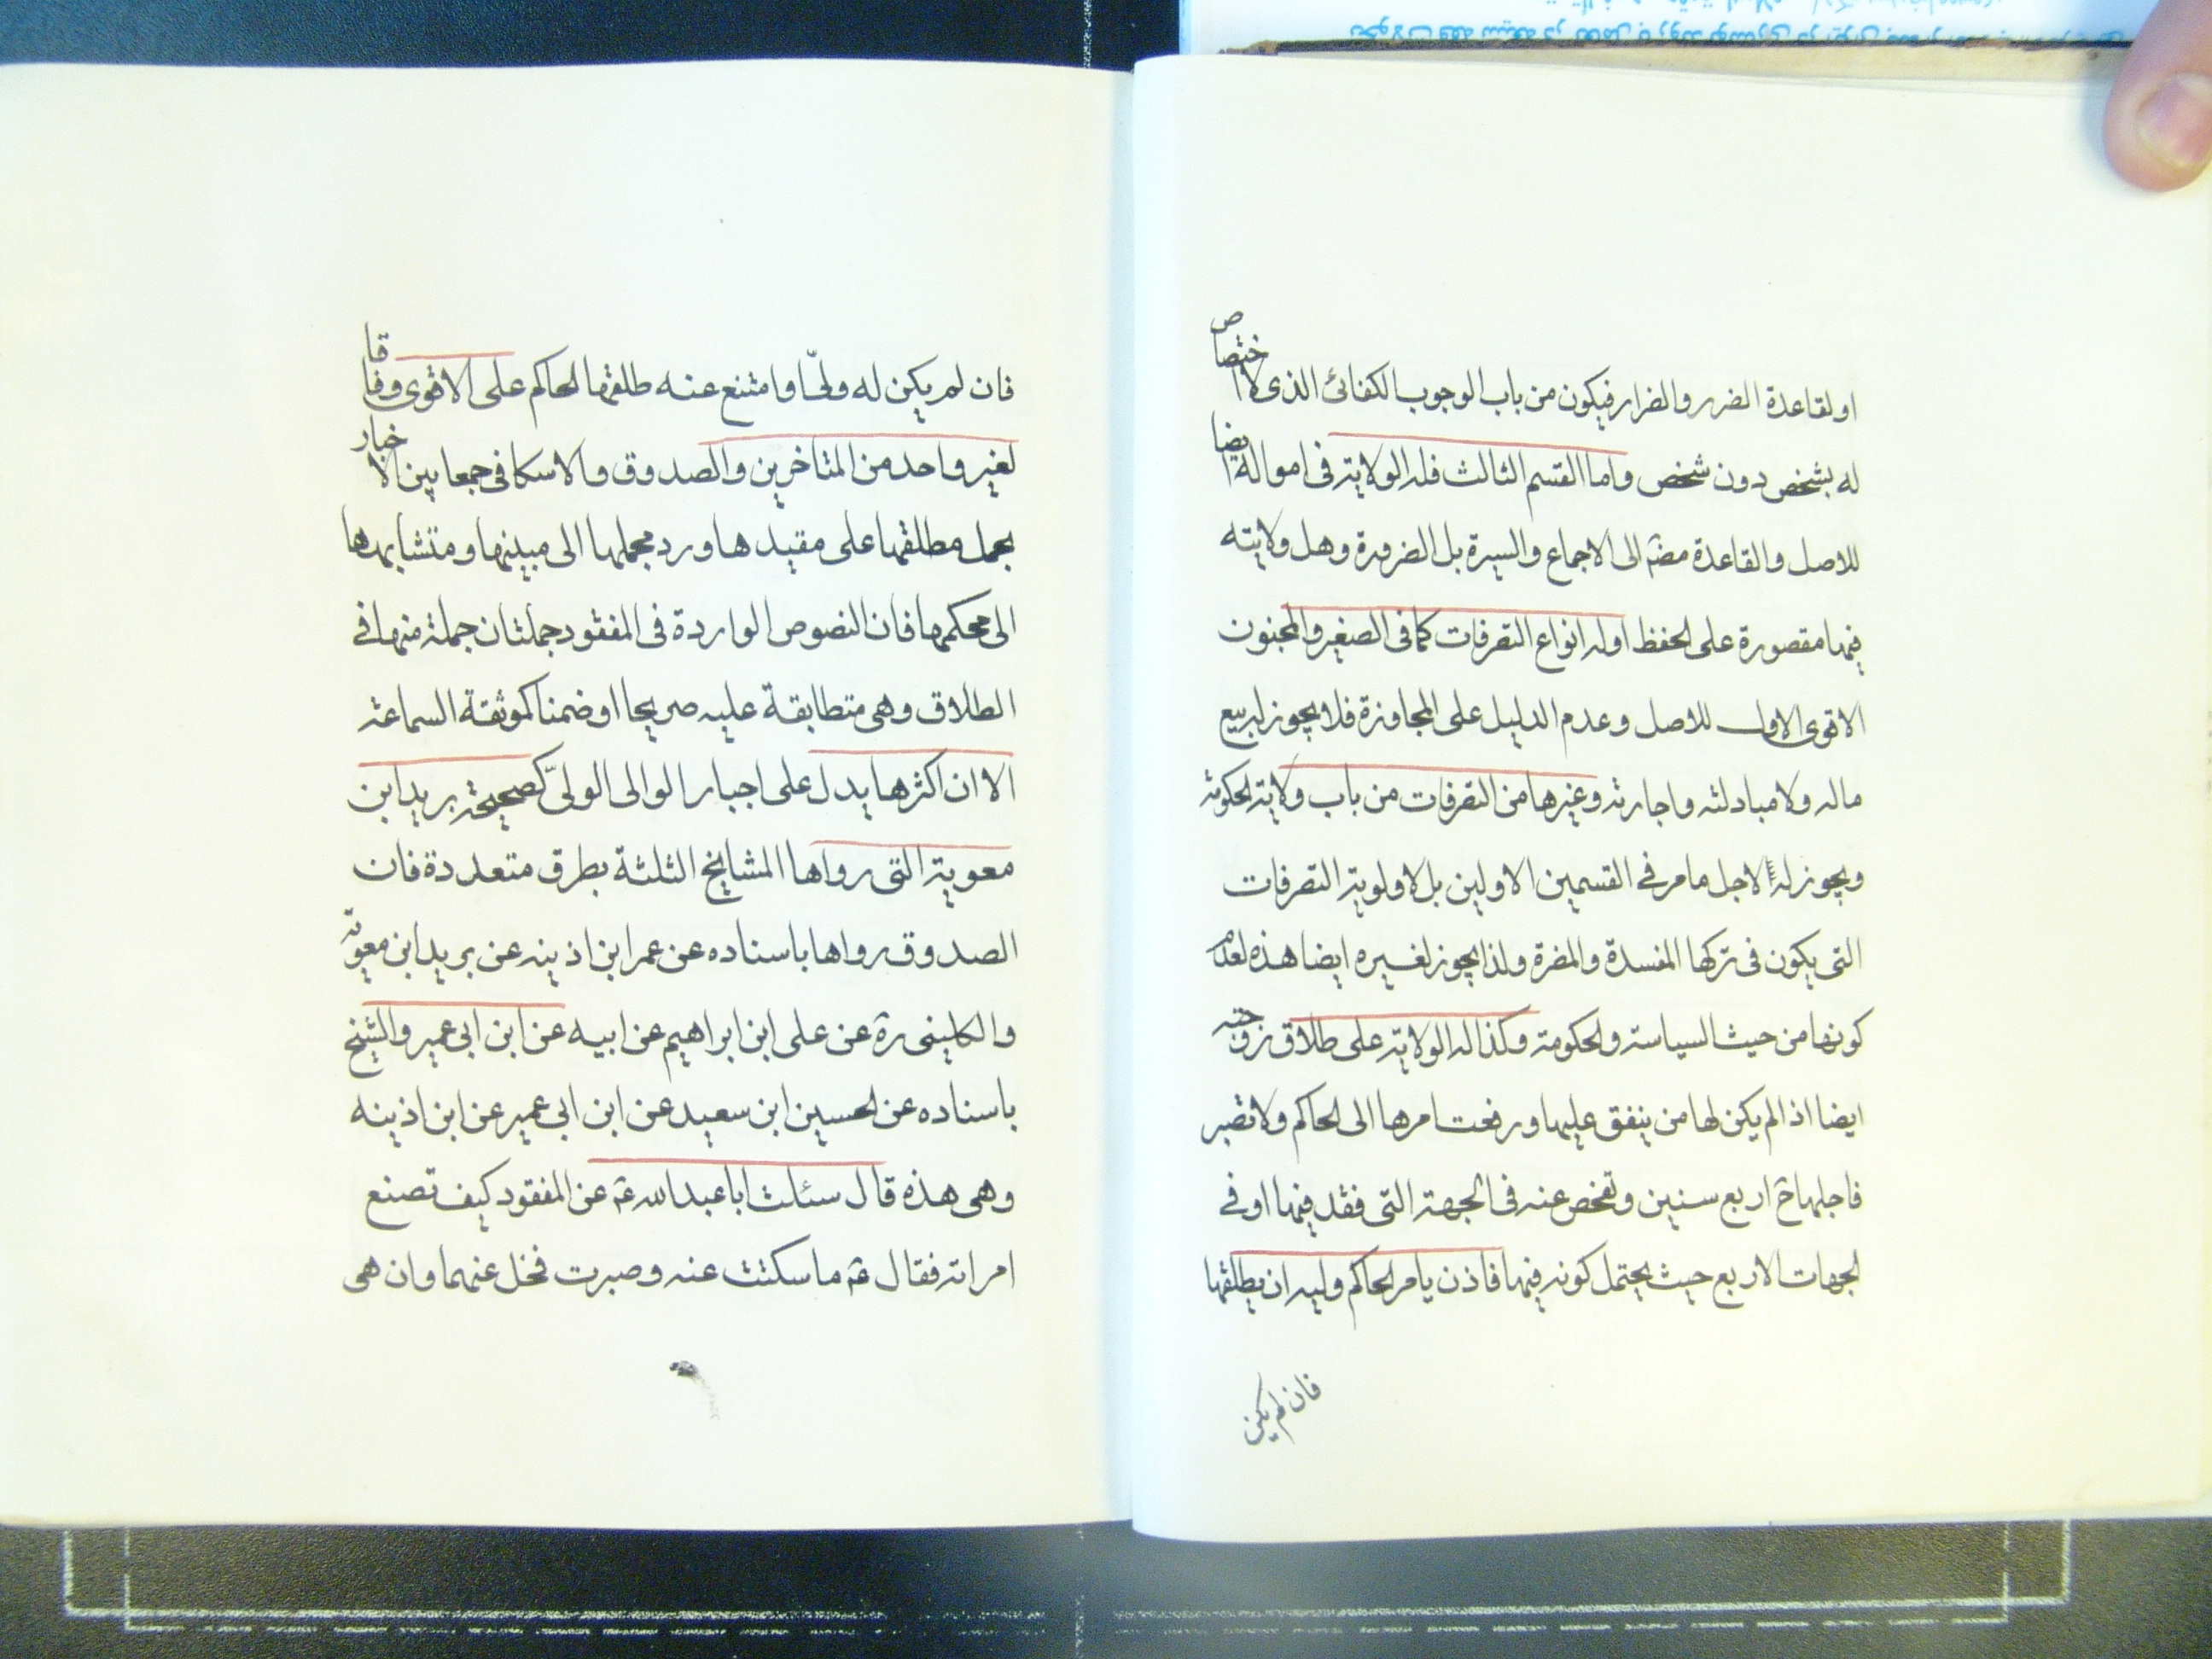 او لقاعدة الضرر والضرار فيكون من باب الوجوب الكفائى الذى لا اختصاص
له بشخص دون شخص واما القسم الثالث فله الولاية فى امواله ايضا
للاصل والقاعدة مضـٓ الى الاجماع والسيرة بل الضرورة وهل ولايته
فيها مقصورة على الحفظ اوله انواع التصرفات كما فى الصغير والمجنون
الاقوى الاول للاصل وعدم الدليل على المجاوزة فلا يجوز له بيع
ماله ولا مبادلته واجارته وغيرها من التصرفات من باب ولاية الحكومة
ويجوز له لاجل ما مر فى القسمين الاولين بل لاولوية التصرفات
التى يكون فى تركها المفسدة والمضرة ولذا يجوز لغيره ايضا هذه لعدم
كونها من حيث السياسة والحكومة وكذا له الولاية على طلاق زوجته
ايضا اذا لم يكن لها من ينفق عليها ورفعت امرها الى الحاكم ولا تصبر
فاجلها حٓ اربع سنين وتفحص عنه فى الجهة التى فقد فيها او فى
الجهات الاربع حيث يحتمل كونه فيها فاذن يامر الحاكم وليه ان يطلقها
فان لم يكن
فان لم يكن له ولىّ او امتنع عنه طلقها الحاكم على الاقوى وفاقا
لغير واحد من المتاخرين والصدوق والاسكافى جمعا بين الاخبار
بحمل مطلقها على مقيدها ورد مجملها الى مبينها ومتشابهها
الى محكمها فان النصوص الواردة فى المفقود جملتان جملة منها فى
الطلاق وهى متطابقة عليه صريحا او ضمنا كموثقة السماعة
الا ان اكثرها يدل على اجبار الوالى الولىّ كصحيحة بريد ابن
معوية التى رواها المشايخ الثلثة بطرق متعددة فان
الصدوق رواها باسناده عن عمر ابن اذينه عن بريد ابن معوية
والكلينى رهٓ عن على ابن ابراهيم عن ابيه عن ابن ابى عمير والشيخ
باسناده عن الحسين ابن سعيد عن ابن ابى عمير عن ابن اذينه
وهى هذه قال سئلت ابا عبد الله عٓ عن المفقود كيف تصنع
امراته فقال عٓ ما سكتت عنه وصبرت فخل عنهما وان هى